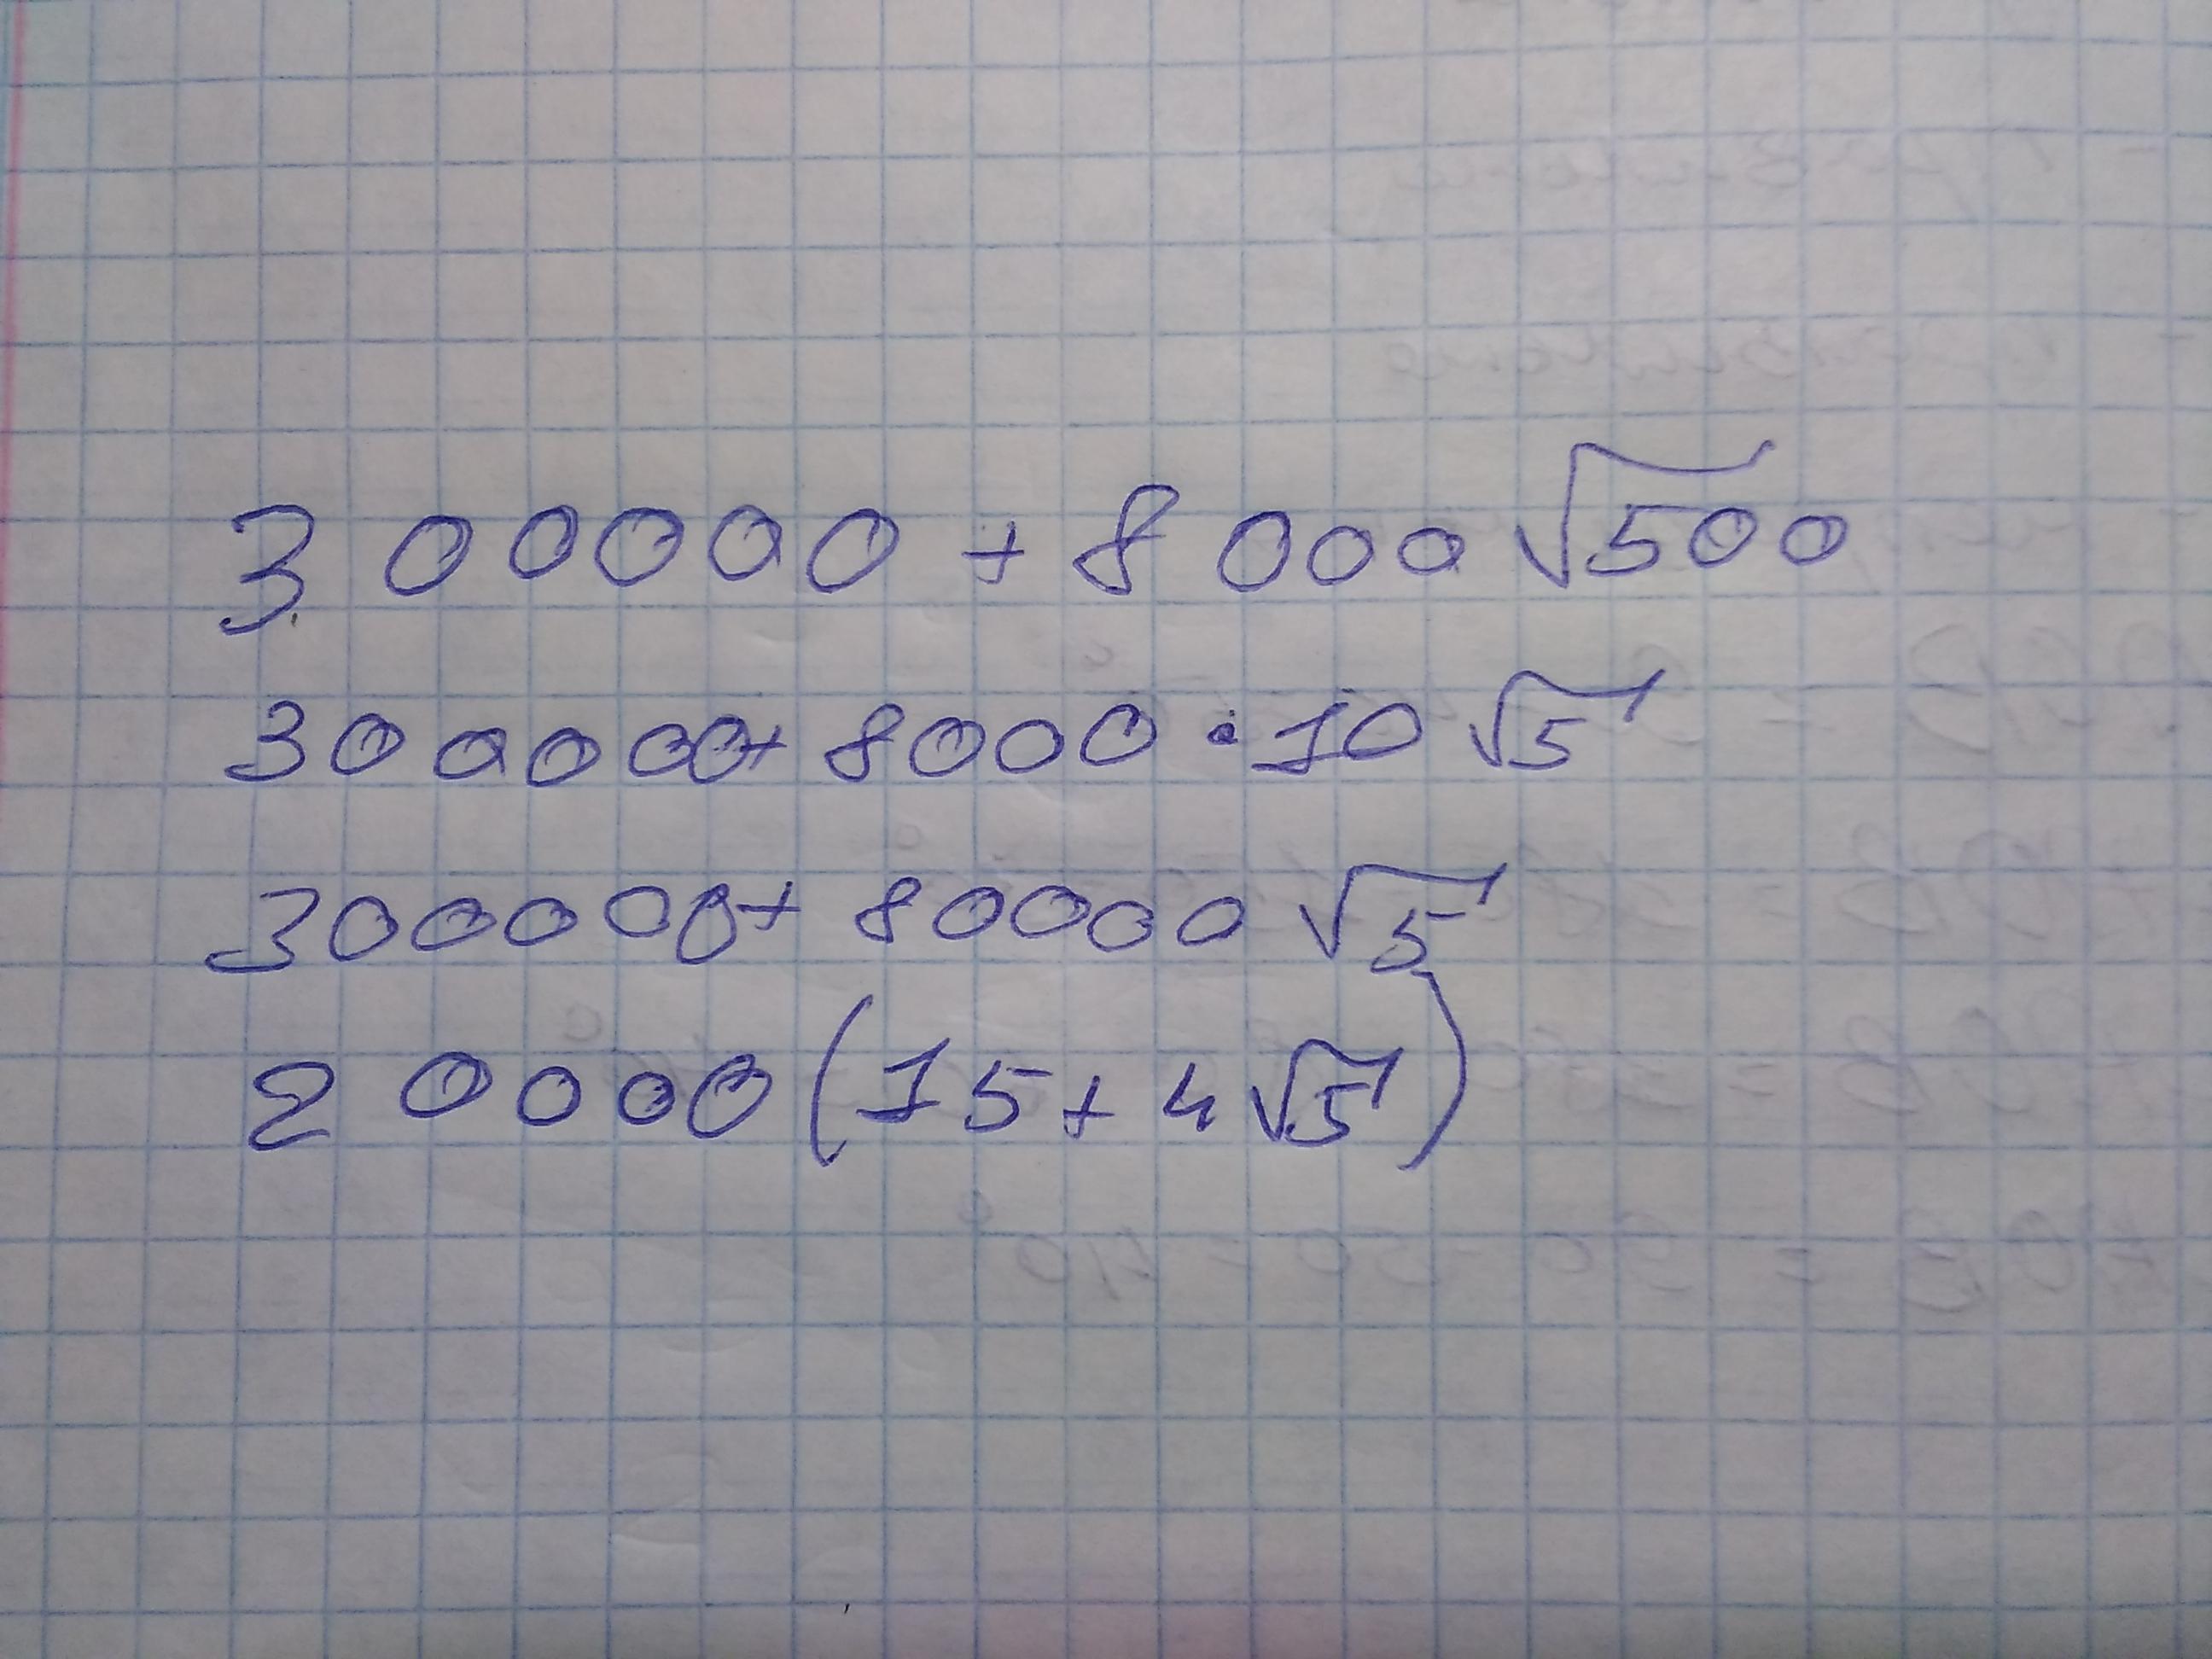 300000 + 8000√500
300000+ 8000 · 10√5
300000+ 80000√5
20000(15+4√5)